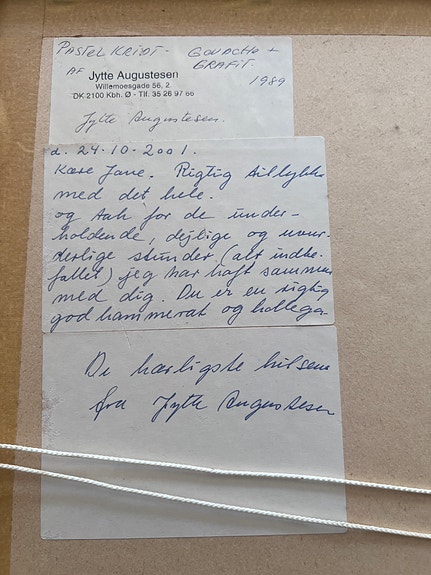 PASTEL KRIDT - GOUACHE +
GRAFIT
AF Jytte Augustesen 1989
Willemoesgade 56, 2.
DK 2100 Kbh. Ø - Tlf. 35 26 97 66
Jytte Augustesen.
d. 24-10-2001.
Kære Jane. Rigtig tillykke
med det hele.
og tak for de under-
holdende, dejlige og vidun-
derlige stunder (alt indbe-
fattet) jeg har haft sammen
med dig. Du er en rigtig
god kammerat og kollega
De kærligste hilsener
fra Jytte Augustesen